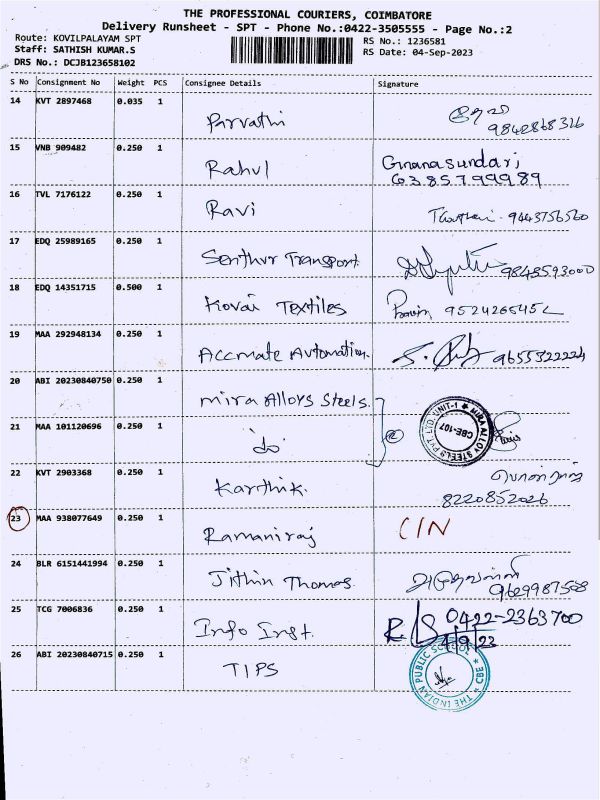 THE PROFESSIONAL COURIERS, COIMBATORE
Delivery Runsheet - SPT - Phone No.:0422-3505555 - Page No.:2
Route: KOVILPALAYAM SPT
Staff: SATHISH KUMAR.S
DRS No.: DCJB123658102
RS No.: 1236581
RS Date: 04-Sep-2023
S No Consignment No Weight PCS Consignee Details Signature
14 KVT 2897468 0.035 1 Parvathi
9842868326
15 VNB 909482 0.250 1 Rahul Gnanasundari
6385799989
16 TVL 7176122 0.250 1 Ravi 9443756560
17 EDQ 25989165 0.250 1 Senthur Transport. 9848593000
18 EDQ 14351715 0.500 1 Kovai Textiles 9524265452
19 MAA 292948134 0.250 1 Accmate Automation. 9655322224
20 ABI 20230840750 0.250 1 Mira Alloys Steels.
21 MAA 101120696 0.250 1 do
MIRA ALLOY STEELS PVT. LTD. UNIT-1
CBE-107
22 KVT 2903368 0.250 1 Karthik.
8220852026
23 MAA 938077649 0.250 1 Ramaniraj CIN
24 BLR 6151441994 0.250 1 Jithin Thomas.
9629987508
25 TCG 7006836 0.250 1 Info Inst. 0422-2363700
4/9/23
26 ABI 20230840715 0.250 1 TIPS
THE INDIAN PUBLIC SCHOOL CBE